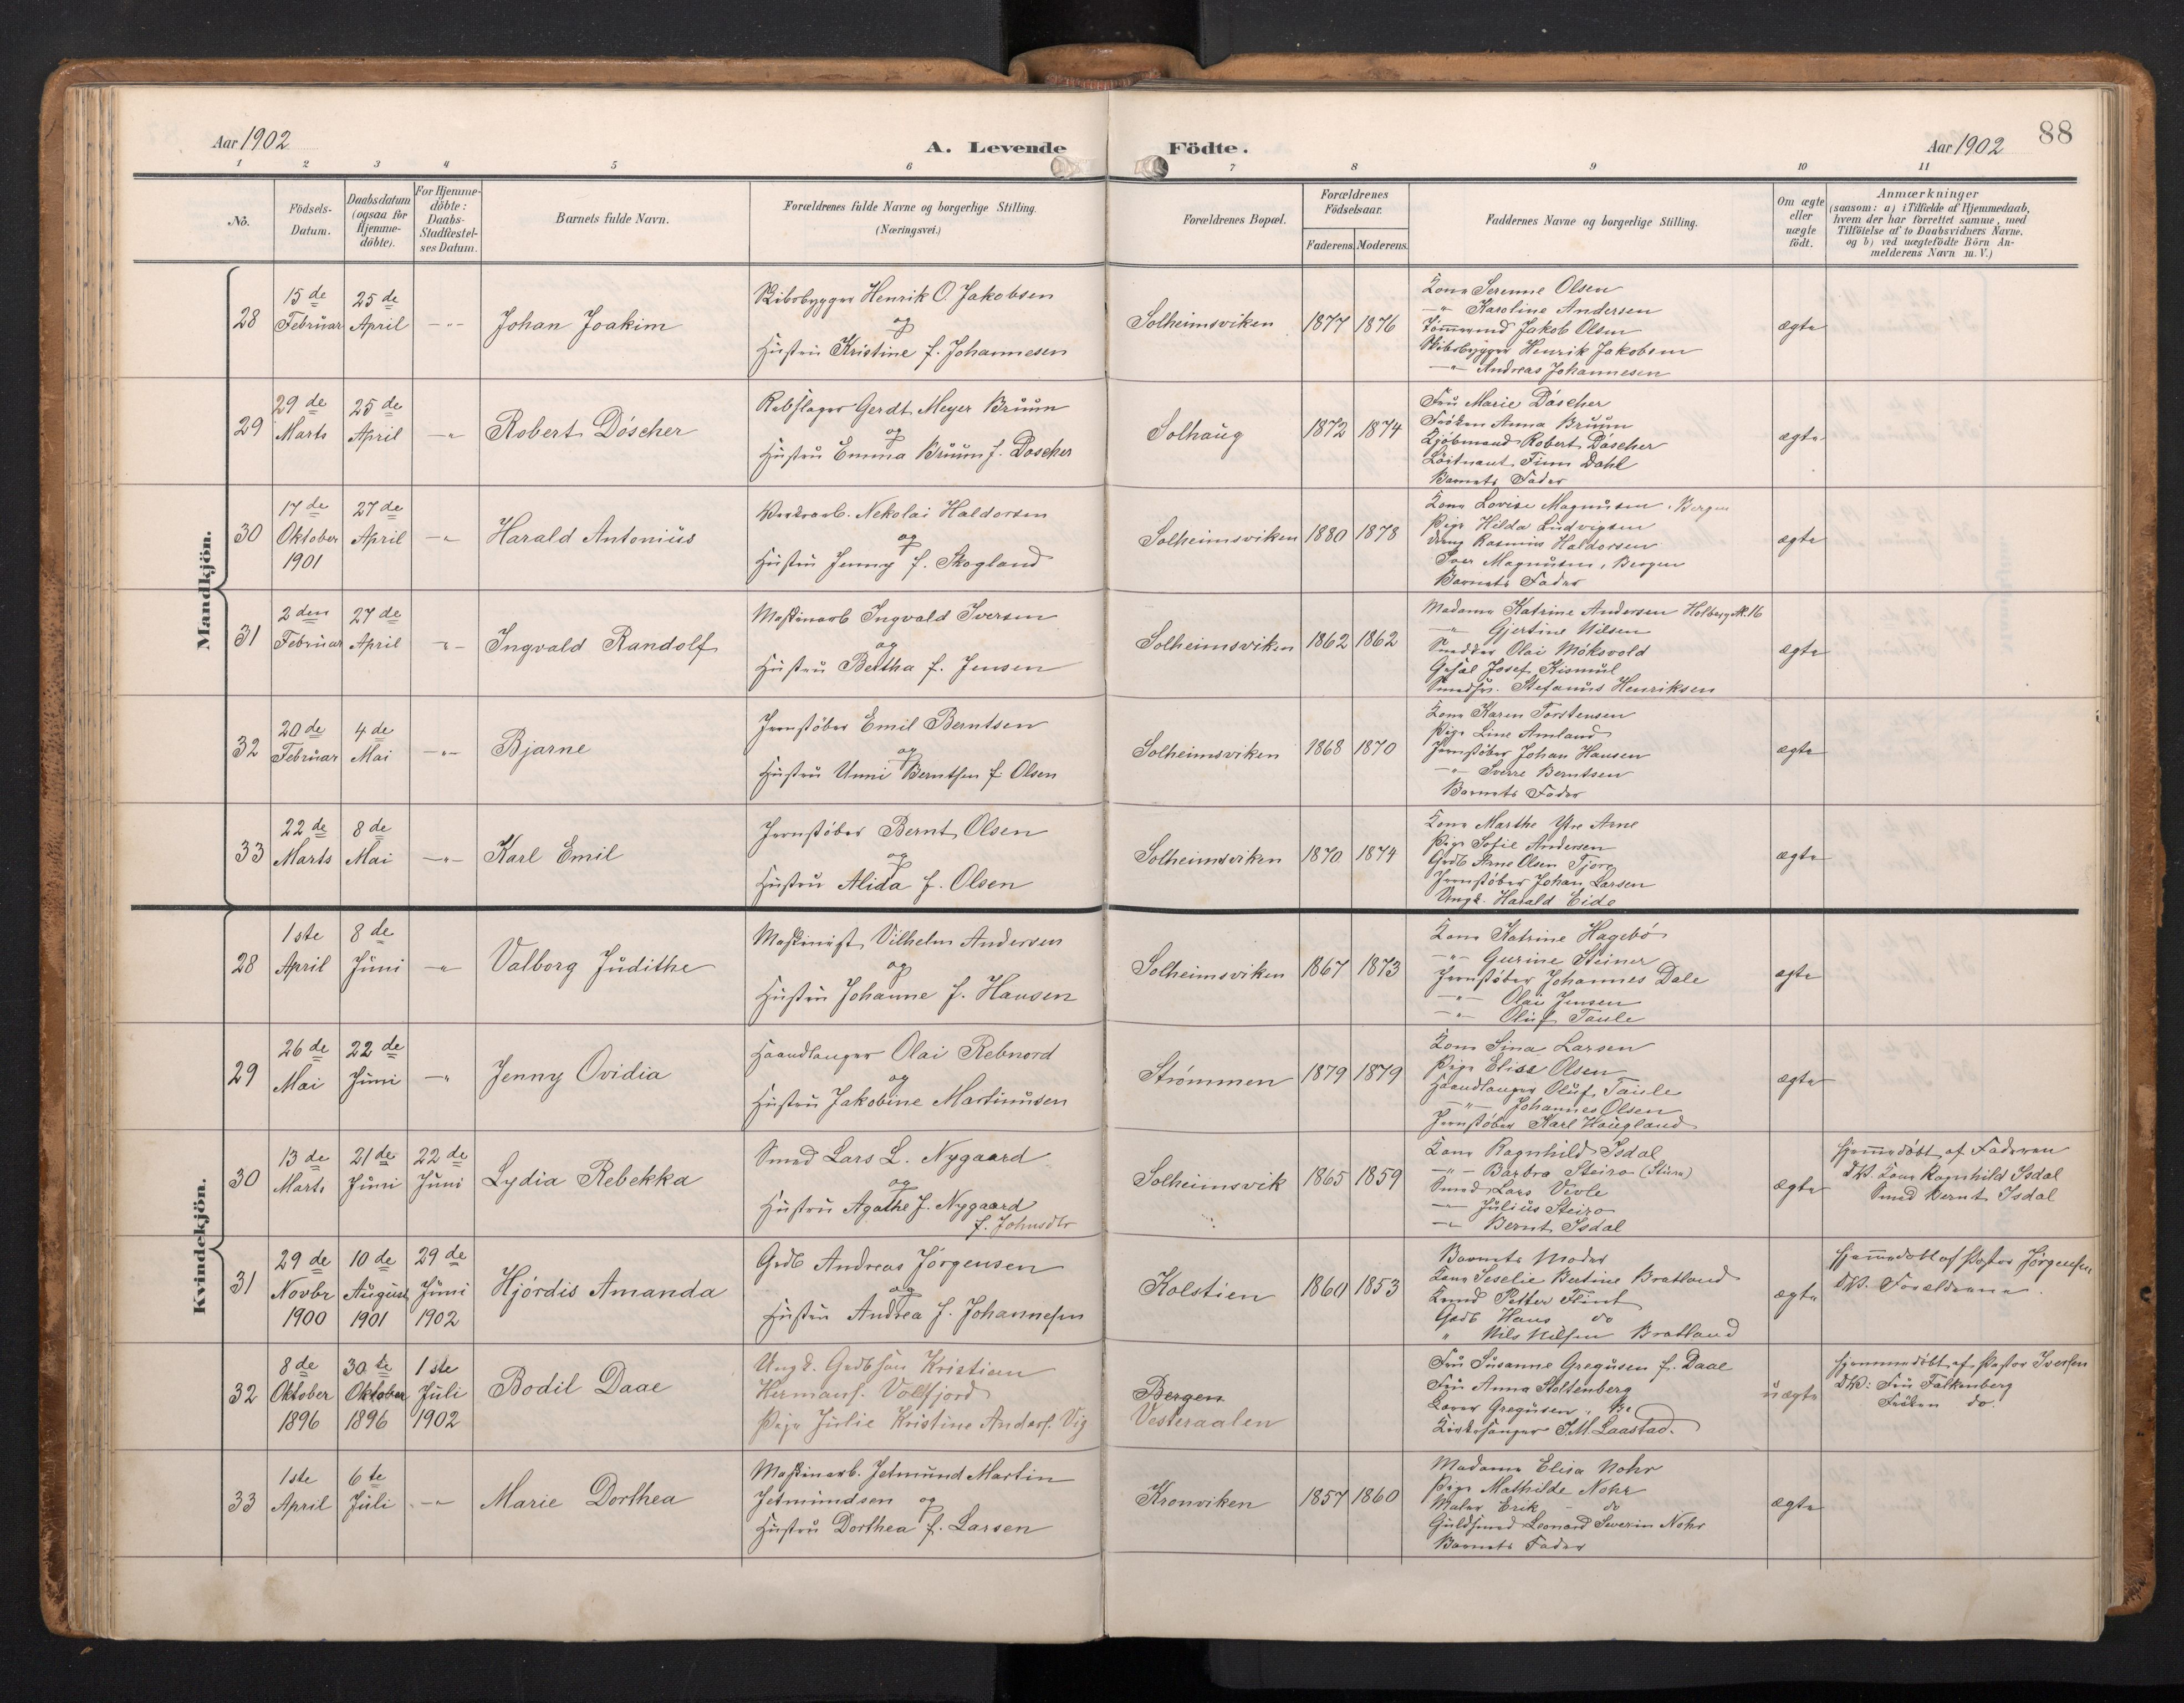 Aar 1902
A. Levende Födte.
Aar 1902
88
1 2 3 4 5 6 7 8 9 10 11
No.
Födsels-Datum.
Daabsdatum (ogsaa for Hjemme-döbte).
For Hjemme-döbte: Daabs-Stadfæstel-ses Datum.
Barnets fulde Navn.
Forældrenes fulde Navne og borgerlige Stilling.
(Næringsvei.)
Forældrenes Bopæl.
Forældrenes Födselsaar.
Faderens. Moderens.
Faddernes Navne og borgerlige Stilling.
Om ægte eller uægte födt.
Anmærkninger
(saasom: a) i Tilfælde af Hjemmedaab,
hvem der har forrettet samme, med
Tilföielse af to Daabsvidners Navne.
og b) ved uægtefödte Börn An-
melderens Navn m. V.)
Mandkjön.
28
15de Februar
25de April
-"-
Johan Joakim
Skibsbygger Henrik O. Jakobsen
og
Hustru Kristine f. Johannesen
Solheimsviken
1877 1876
Kone Serenne Olsen
-"- Karoline Andersen
Tømmermd Jakob Olsen
Skibsbygger Henrik Jakobsen
-"- Andreas Johannesen
ægte
29
29de Marts
25de April
-"-
Robert Döscher
Rebslager Gerdt Meyer Bruun
og
Hustru Emma Bruun f. Döscher
Solhaug
1872 1874
Fru Marie Döscher
Fröken Anna Bruun
Kjöbmand Robert Döscher
Löitnant Finn Dahl
Barnets Fader
ægte
30
17de Oktober 1901
27de April
-"-
Harald Antonius
Værksarb. Nekolai Haldorsen
og
Hustru Jenny f. Skogland
Solheimsviken
1880 1878
Kone Lovise Magnusen, Bergen
Pige Hilda Ludvigsen
Dreng Rasmus Haldorsen
Iver Magnusen, Bergen
Barnets Fader
ægte
31
2den Februar
27de April
-"-
Ingvald Randolf
Maskinarb Ingvald Iversen
og
Hustru Bertha f. Jensen
Solheimsviken
1862 1862
Madame Katrine Andersen Holbergsalm.16
-"- Gjertine Nilsen
Olai Möksvold
Josef Kismul
Stefanus Henriksen
ægte
32
20de Februar
4de Mai
-"-
Bjarne
Jernstöber Emil Berntsen
og
Hustru Unni Bernthsen f. Olsen
Solheimsviken
1868 1870
Kone Karen Torstensen
Pige Line Amland
Jernstöber Johan Hansen
-"- Sverre Berntsen
Barnets Fader
ægte
33
22de Marts
8de Mai
-"-
Karl Emil
Jernstöber Bernt Olsen
og
Hustru Alida f. Olsen
Solheimsviken
1870 1874
Kone Marthe Ytre Arne
Pige Sofie Andersen
Gdb Arne Olsen
Jernstöber Johan Larsen
Ungk. Harald Eide
ægte
Kvindekjön.
28
1ste April
8de Juni
-"-
Valborg Judithe
Maskinist Vilhelm Andersen
og
Hustru Johanne f. Hansen
Solheimsviken
1867 1873
Kone Katrine Hagebö
-"- Gurine Steiner
Jernstöber Johannes Dale
-"- Olai Jensen
-"- Oluf Taule
ægte
29
26de Mai
22de Juni
-"-
Jenny Ovidia
Haandlanger Olai Rebnord
og
Hustru Jakobine Martinusen
Strömmen
1879 1879
Kone Sina Larsen
Pige Elise Olsen
Haandlanger Oluf Taule
-"- Johannes Olsen
Jernstöber Karl Haugland
ægte
30
13de Marts
21de Juni
22de Juni
Lydia Rebekka
Smed Lars L. Nygaard
og
Hustru Agathe J. Nygaard
f. Johnsdtr
Solheimsvik
1865 1859
Kone Ragnhild Isdal
-"- Barbro Steiro (Stüen)
Smed Lars Vevle
-"- Julius Steiro
-"- Bernt Isdal
ægte
Hjemmedöbt af Faderen
DV. Kone Ragnhild Isdal
Smed Bernt Isdal
31
29de Novbr 1900
10de August 1901
29de Juni 1902
Hjördis Amanda
Grdb Andreas Jörgensen
og
Hustru Andrea f. Johannesen
Kolstien
1860 1853
Barnets Moder
Kone Seselie Bertine Bratland
Petter Flint
Grdb Hans do
" Nils Nilsen Bratland
ægte
Hjemmedöbt af Pastor Jörgensen
DV. Forældrene.
32
8de Oktober 1896
30te Oktober 1896
1ste Juli 1902
Bodil Daae
Ungk. Grdbsön Kristian
Hermans. Vollfjord
Pige Julie Kristine Anders. Vig
Bergen
Vesteraalen
Fru Susanne Gregusen f. Daae
Fru Anna Stoltenberg
Gregusen,
Kirkesanger I.M. Laastad.
uægte
Hjemmedöbt af Pastor Iversen
DV: Fru Falkenberg
Fröken do.
33
1ste April
6te Juli
-"-
Marie Dorthea
Maskinarb. Jetmund Martin
Jetmundsen og
Hustru Dorthea f. Larsen
Kronviken
1857 1860
Madame Elisa Nohr
Pige Mathilde Nohr
Maler Erik do
Guldsmed Leonard Severin Nohr
Barnets Fader
ægte